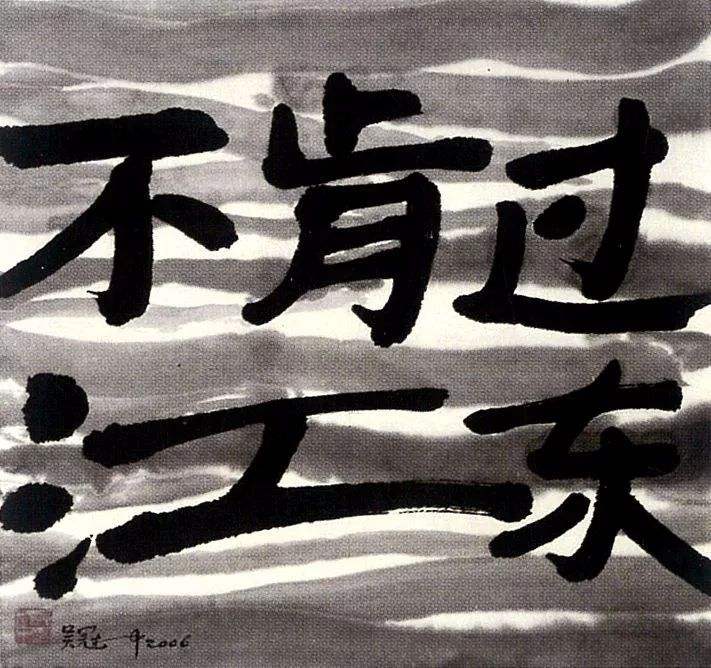 不肯过
江东
吴冠中2006